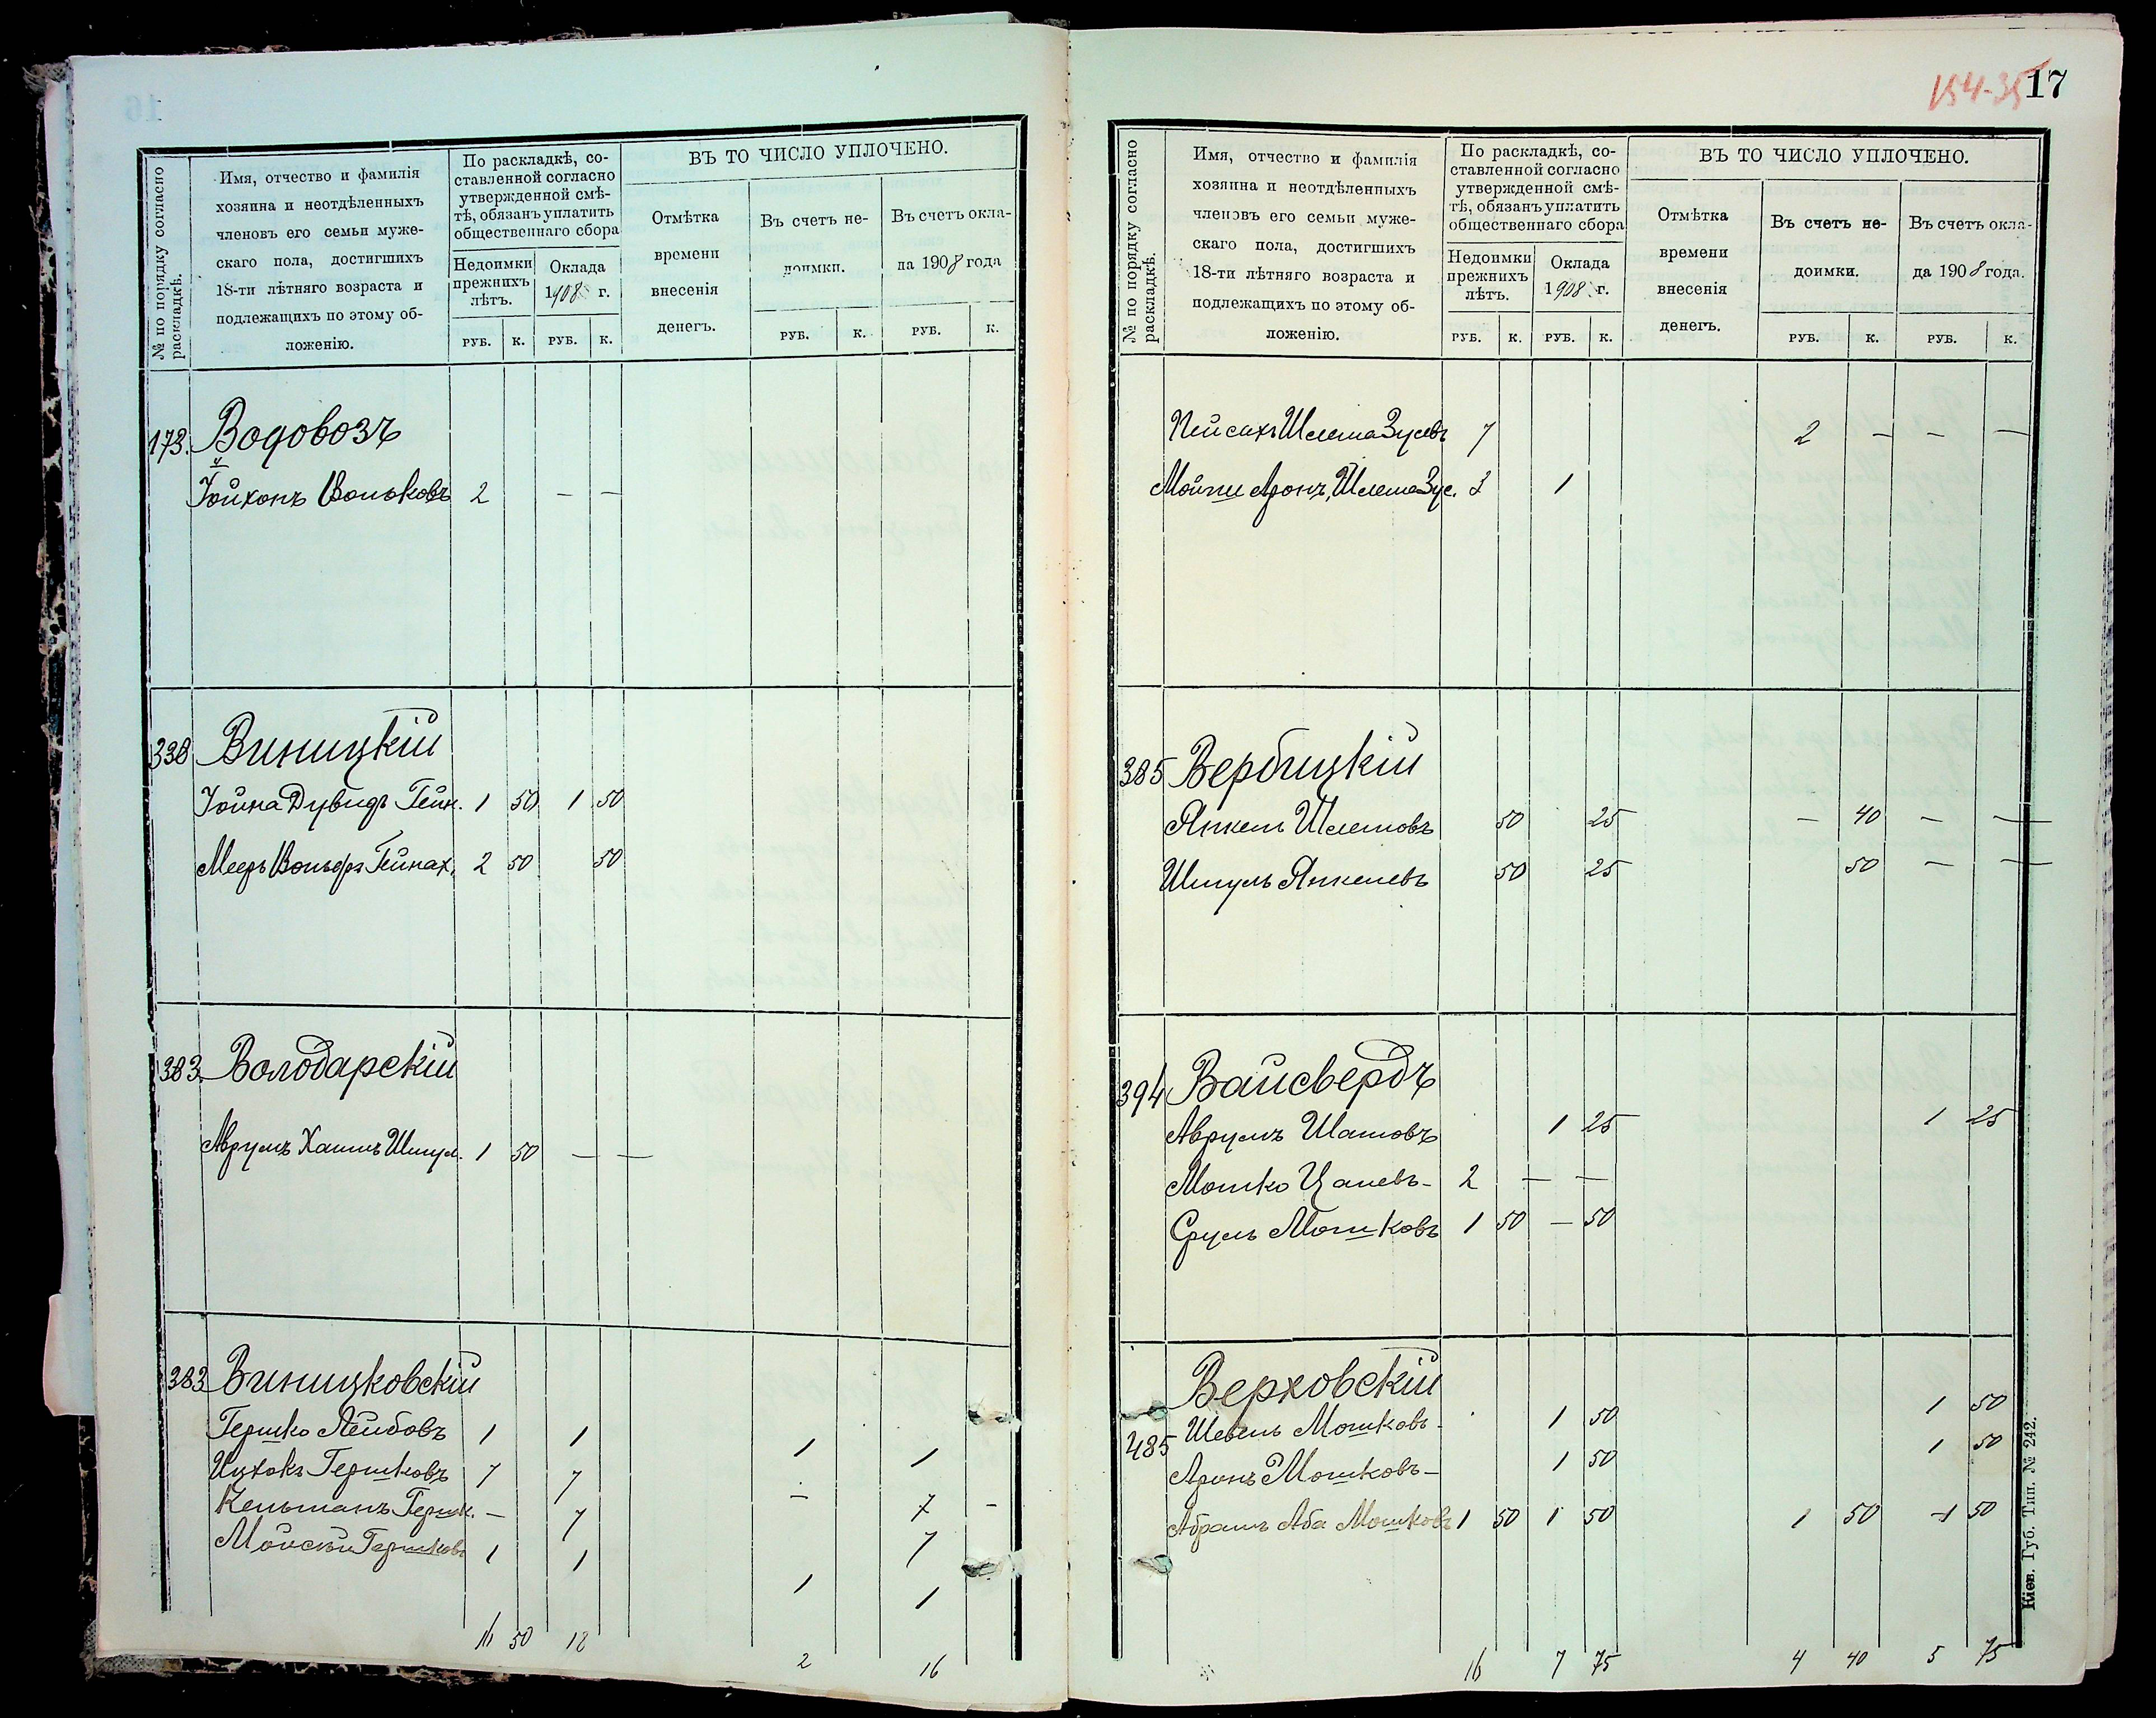 № по порядку согласно
раскладкѣ.
Имя, отчество и фамилія
хозяина и неотдѣленныхъ
членовъ его семьи муже-
скаго пола, достигшихъ
18-ти лѣтняго возраста и
подлежащихъ по этому об-
ложенію.
По раскладкѣ, со-
ставленной согласно
утвержденной смѣ-
тѣ, обязанъ уплатить
общественнаго сбора
Недоимки
прежнихъ
лѣтъ.
Оклада
1908 г.
ВЪ ТО ЧИСЛО УПЛОЧЕНО.
Отмѣтка
времени
внесенія
денегъ.
Въ счетъ не-
доимки.
Въ счетъ окла-
да 1908 года
РУБ. К. РУБ. К. РУБ. К. РУБ. К.
173. Водовозъ
Іойхонъ Вольковъ 2 — —
338 Виницкій
Іойна Дувидъ Гейн. 1 50 1 50
Мееръ Вольфъ Гейнах. 2 50 50
383. Володарскій
Аврумъ Хаимъ Шмул. 1 50 — —
383 Виницковскій
Гершко Лейбовъ 1 1 1 1
Ицхокъ Гершковъ 7 7 — 7 -
Кельманъ Гершк. — 7 7
Мойсей Гершковъ 1 1 1 1
16 50 18 2 16
154-35
17
№ по порядку согласно
раскладкѣ.
Имя, отчество и фамилія
хозяина и неотдѣленныхъ
членовъ его семьи муже-
скаго пола, достигшихъ
18-ти лѣтняго возраста и
подлежащихъ по этому об-
ложенію.
По раскладкѣ, со-
ставленной согласно
утвержденной смѣ-
тѣ, обязанъ уплатить
общественнаго сбора
Недоимки
прежнихъ
лѣтъ.
Оклада
1908 г.
ВЪ ТО ЧИСЛО УПЛОЧЕНО.
Отмѣтка
времени
внесенія
денегъ.
Въ счетъ не-
доимки.
Въ счетъ окла-
да 1908 года.
РУБ. К. РУБ. К. РУБ. К. РУБ. К.
Пейсахъ Шлема Зусевъ 7 2 — — —
Аронъ, Шлема Зус. 3 1
385 Вербицкій
Янкель Шлемовъ 50 25 — 40 — —
Шмуль Янкелевъ 50 25 50 — —
394 Вайсвердъ
Аврумъ Шамовъ 1 25 1 25
Мошко 2 — —
Сруль Мошковъ 1 50 — 50
Верховскій
485 Шевель Мошковъ - 1 50 1 50
Аронъ Мошковъ — 1 50 1 50
Абрамъ Аба Мошковъ 1 50 1 50 1 50 1 50
16 7 75 4 40 5 75
Кіев. Губ. Тип. № 242.